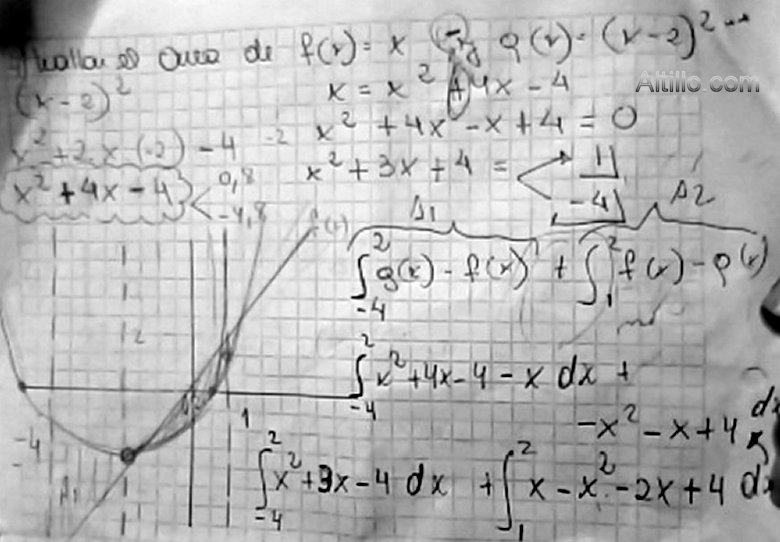 Hallar el área de f(x) = x y g(x) = (x-2)²
Altillo.com
(x-2)²
x = x² + 4x - 4
x² + 2·x·(-2) - 4
x² + 4x - x + 4 = 0
x² + 4x - 4 < 0,8
-4,8
x² + 3x + 4 = < 1
-4
f(x)
A1
A2
∫₋₄² g(x) - f(x) + ∫₁² f(x) - g(x)
∫₋₄² x² + 4x - 4 - x dx +
-x² - x + 4 dx
-4
1
∫₋₄² x² + 3x - 4 dx + ∫₁² x - x² - 2x + 4 dx